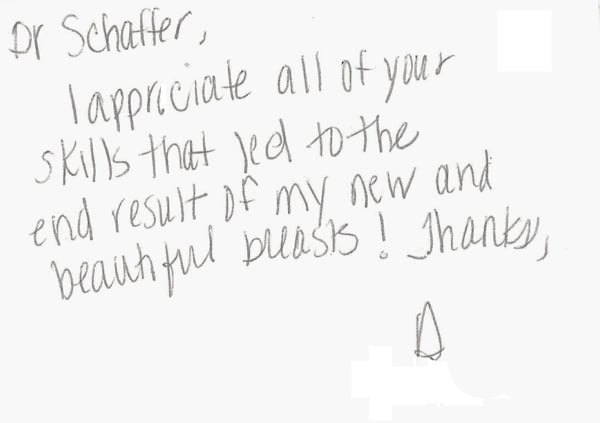 Dr Schaffer,
I appriciate all of your
skills that led to the
end result of my new and
beautiful breasts! Thanks,
D